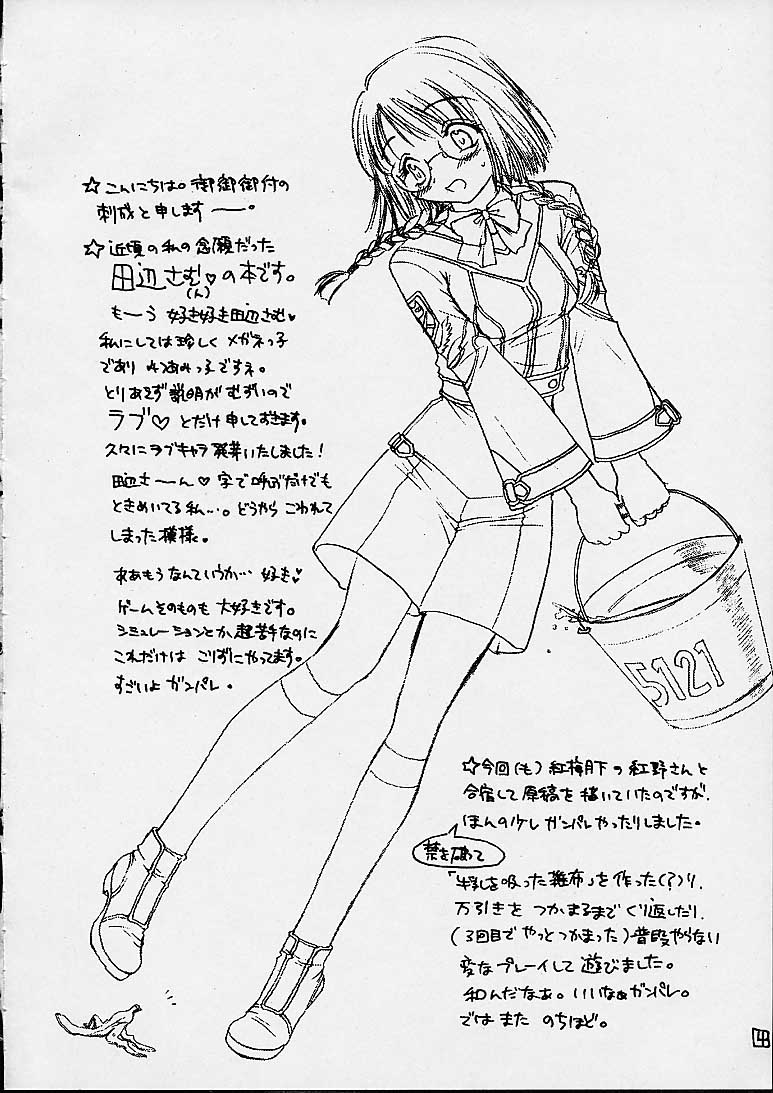 ☆こんにちは。御御御付の
刺成と申します――。
☆近頃の私の念願だった
田辺さむ♡の本です。
(ん)
も―う 好き好き田辺さむ♥
私にしては珍しくメガネっ子
であり みつあみっ子ですネ。
とりあえず説明がむずいので
ラブ♡ とだけ申しておきます。
久々にラブキャラ発芽いたしました!
田辺さ―ん♡ 字で呼ぶだけでも
ときめいてる私…。どうやら こわれて
しまった模様。
ああもうなんていうか… 好き♥
ゲームそのものも 大好きです。
シミュレーションとか超苦手なのに
これだけは こりずにやってます。
すごいよ ガンパレ。
5121
☆今回(も) 紅梅月下の紅野さんと
合宿して原稿を描いていたのですが、
ほんの少し ガンパレやったりしました。
禁を破って
「牛乳を吸った雑布」を作った(?)り、
万引きを つかまるまで くり返したり、
(3回目で やっとつかまった)普段やらない
変なプレイして 遊びました。
和んだなぁ。いいなぁガンパレ。
では また のちほど。
4